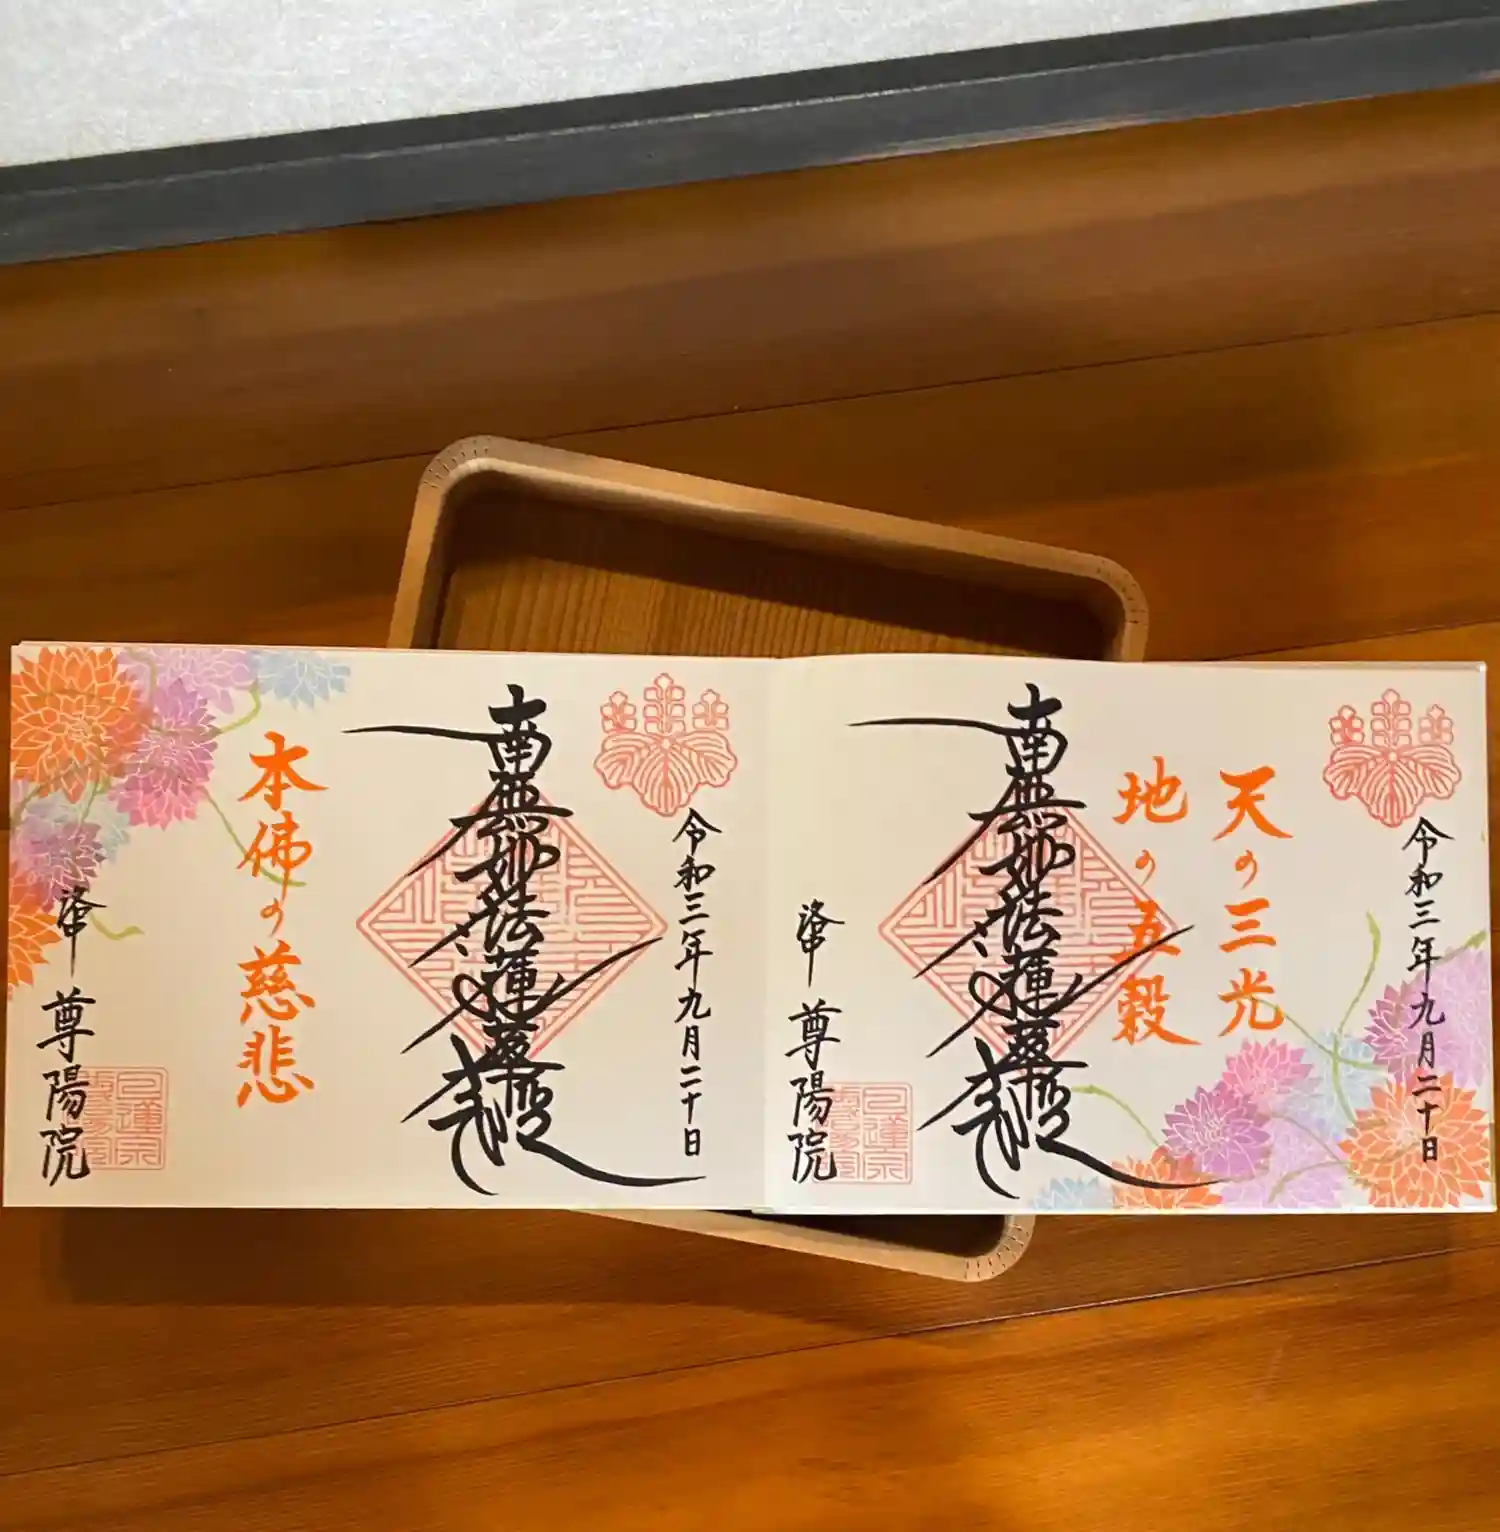 令和三年九月二十日
天の三光
地の五穀
南無妙法蓮華経
洛中
尊陽院
令和三年九月二十日
南無妙法蓮華経
本佛の慈悲
洛中
尊陽院